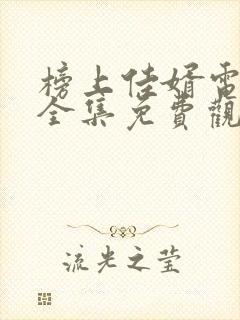 榜上佳婿電
全集免費觀
流光之莹